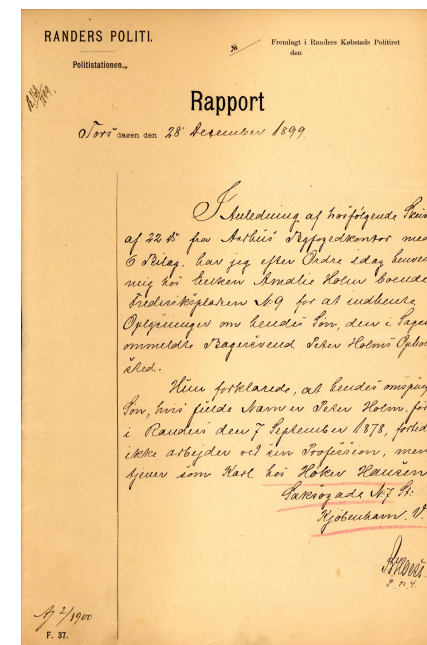 RANDERS POLITI.
Politistationen.
№
Fremlagt i Randers Købstads Politiret
den
Rapport
Torsdagen den 28' Dezember 1899.
I Anledning af hosfølgende
af 22 ds fra Aarhus Byfogedkontor med
6 Bilag, har jeg efter Ordre idag
mig hos Enken Amalie Holm boende
Frederiksplaren № 9 for at indhente
Oplysninger om hendes Søn, den i Sagen
ommeldte Bagersvend Peter Holms
sted.
Hun forklarede, at hendes
Søn, hvis fulde Navn er Peter Holm, før
i Randers den 7 September 1878,
ikke arbejder ved sin Profession, men
tjener som Karl hos Høker Hansen
Saxogade № 7 St:
Kjøbenhavn. V.
P. № 4.
Af 2/1900
F. 37.